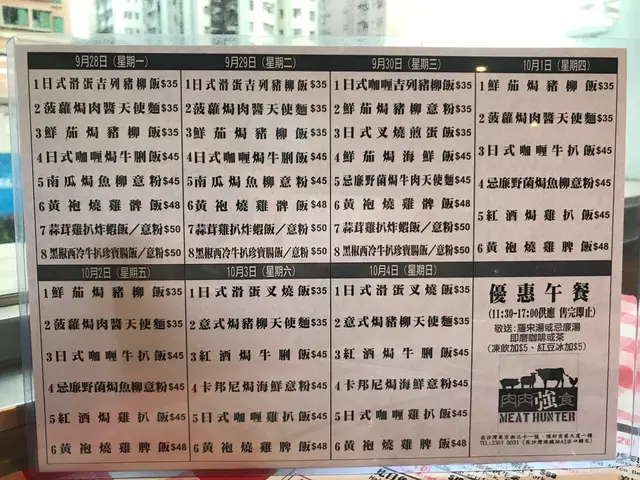 9月28日（星期一）
1日式滑蛋吉列豬柳飯$35
2菠蘿焗肉醬天使麵$35
3鮮茄焗豬柳飯$35
4日式咖喱焗牛脷飯$45
5南瓜焗魚柳意粉$45
6黃袍燒雞髀飯$48
7蒜茸雞扒炸蝦飯／意粉$50
8黑椒西冷牛扒珍寶腸飯／意粉$50
9月29日（星期二）
1日式滑蛋吉列豬柳飯$35
2菠蘿焗肉醬天使麵$35
3鮮茄焗豬柳飯$35
4日式咖喱焗牛脷飯$45
5南瓜焗魚柳意粉$45
6黃袍燒雞髀飯$48
7蒜茸雞扒炸蝦飯／意粉$50
8黑椒西冷牛扒珍寶腸飯／意粉$50
9月30日（星期三）
1日式咖喱吉列豬柳飯$35
2鮮茄焗豬柳意粉$35
3日式叉燒煎蛋飯$35
4鮮茄焗海鮮飯$45
5忌廉野菌焗牛肉天使麵$45
6黃袍燒雞髀飯$48
7蒜茸雞扒炸蝦飯／意粉$50
8黑椒西冷牛扒珍寶腸飯／意粉$50
10月1日（星期四）
1鮮茄焗豬柳飯$35
2菠蘿焗肉醬天使麵$35
3日式咖喱牛扒飯$45
4忌廉野菌焗魚柳意粉$45
5紅酒焗雞扒飯$45
6黃袍燒雞脾飯$48
10月2日（星期五）
1鮮茄焗豬柳飯$35
2菠蘿焗肉醬天使麵$35
3日式咖喱牛扒飯$45
4忌廉野菌焗魚柳意粉$45
5紅酒焗雞扒飯$45
6黃袍燒雞脾飯$48
10月3日（星期六）
1日式滑蛋叉燒飯$35
2意式焗豬柳天使麵$35
3紅酒焗牛脷飯$45
4卡邦尼焗海鮮意粉$45
5日式咖喱雞扒飯$45
6黃袍燒雞脾飯$48
10月4日（星期日）
1日式滑蛋叉燒飯$35
2意式焗豬柳天使麵$35
3紅酒焗牛脷飯$45
4卡邦尼焗海鮮意粉$45
5日式咖喱雞扒飯$45
6黃袍燒雞脾飯$48
優惠午餐
(11:30-17:00供應 售完即止)
敬送:羅宋湯或忌廉湯
即磨咖啡或茶
(凍飲加$5、紅豆冰加$5)
肉肉強食
MEAT HUNTER